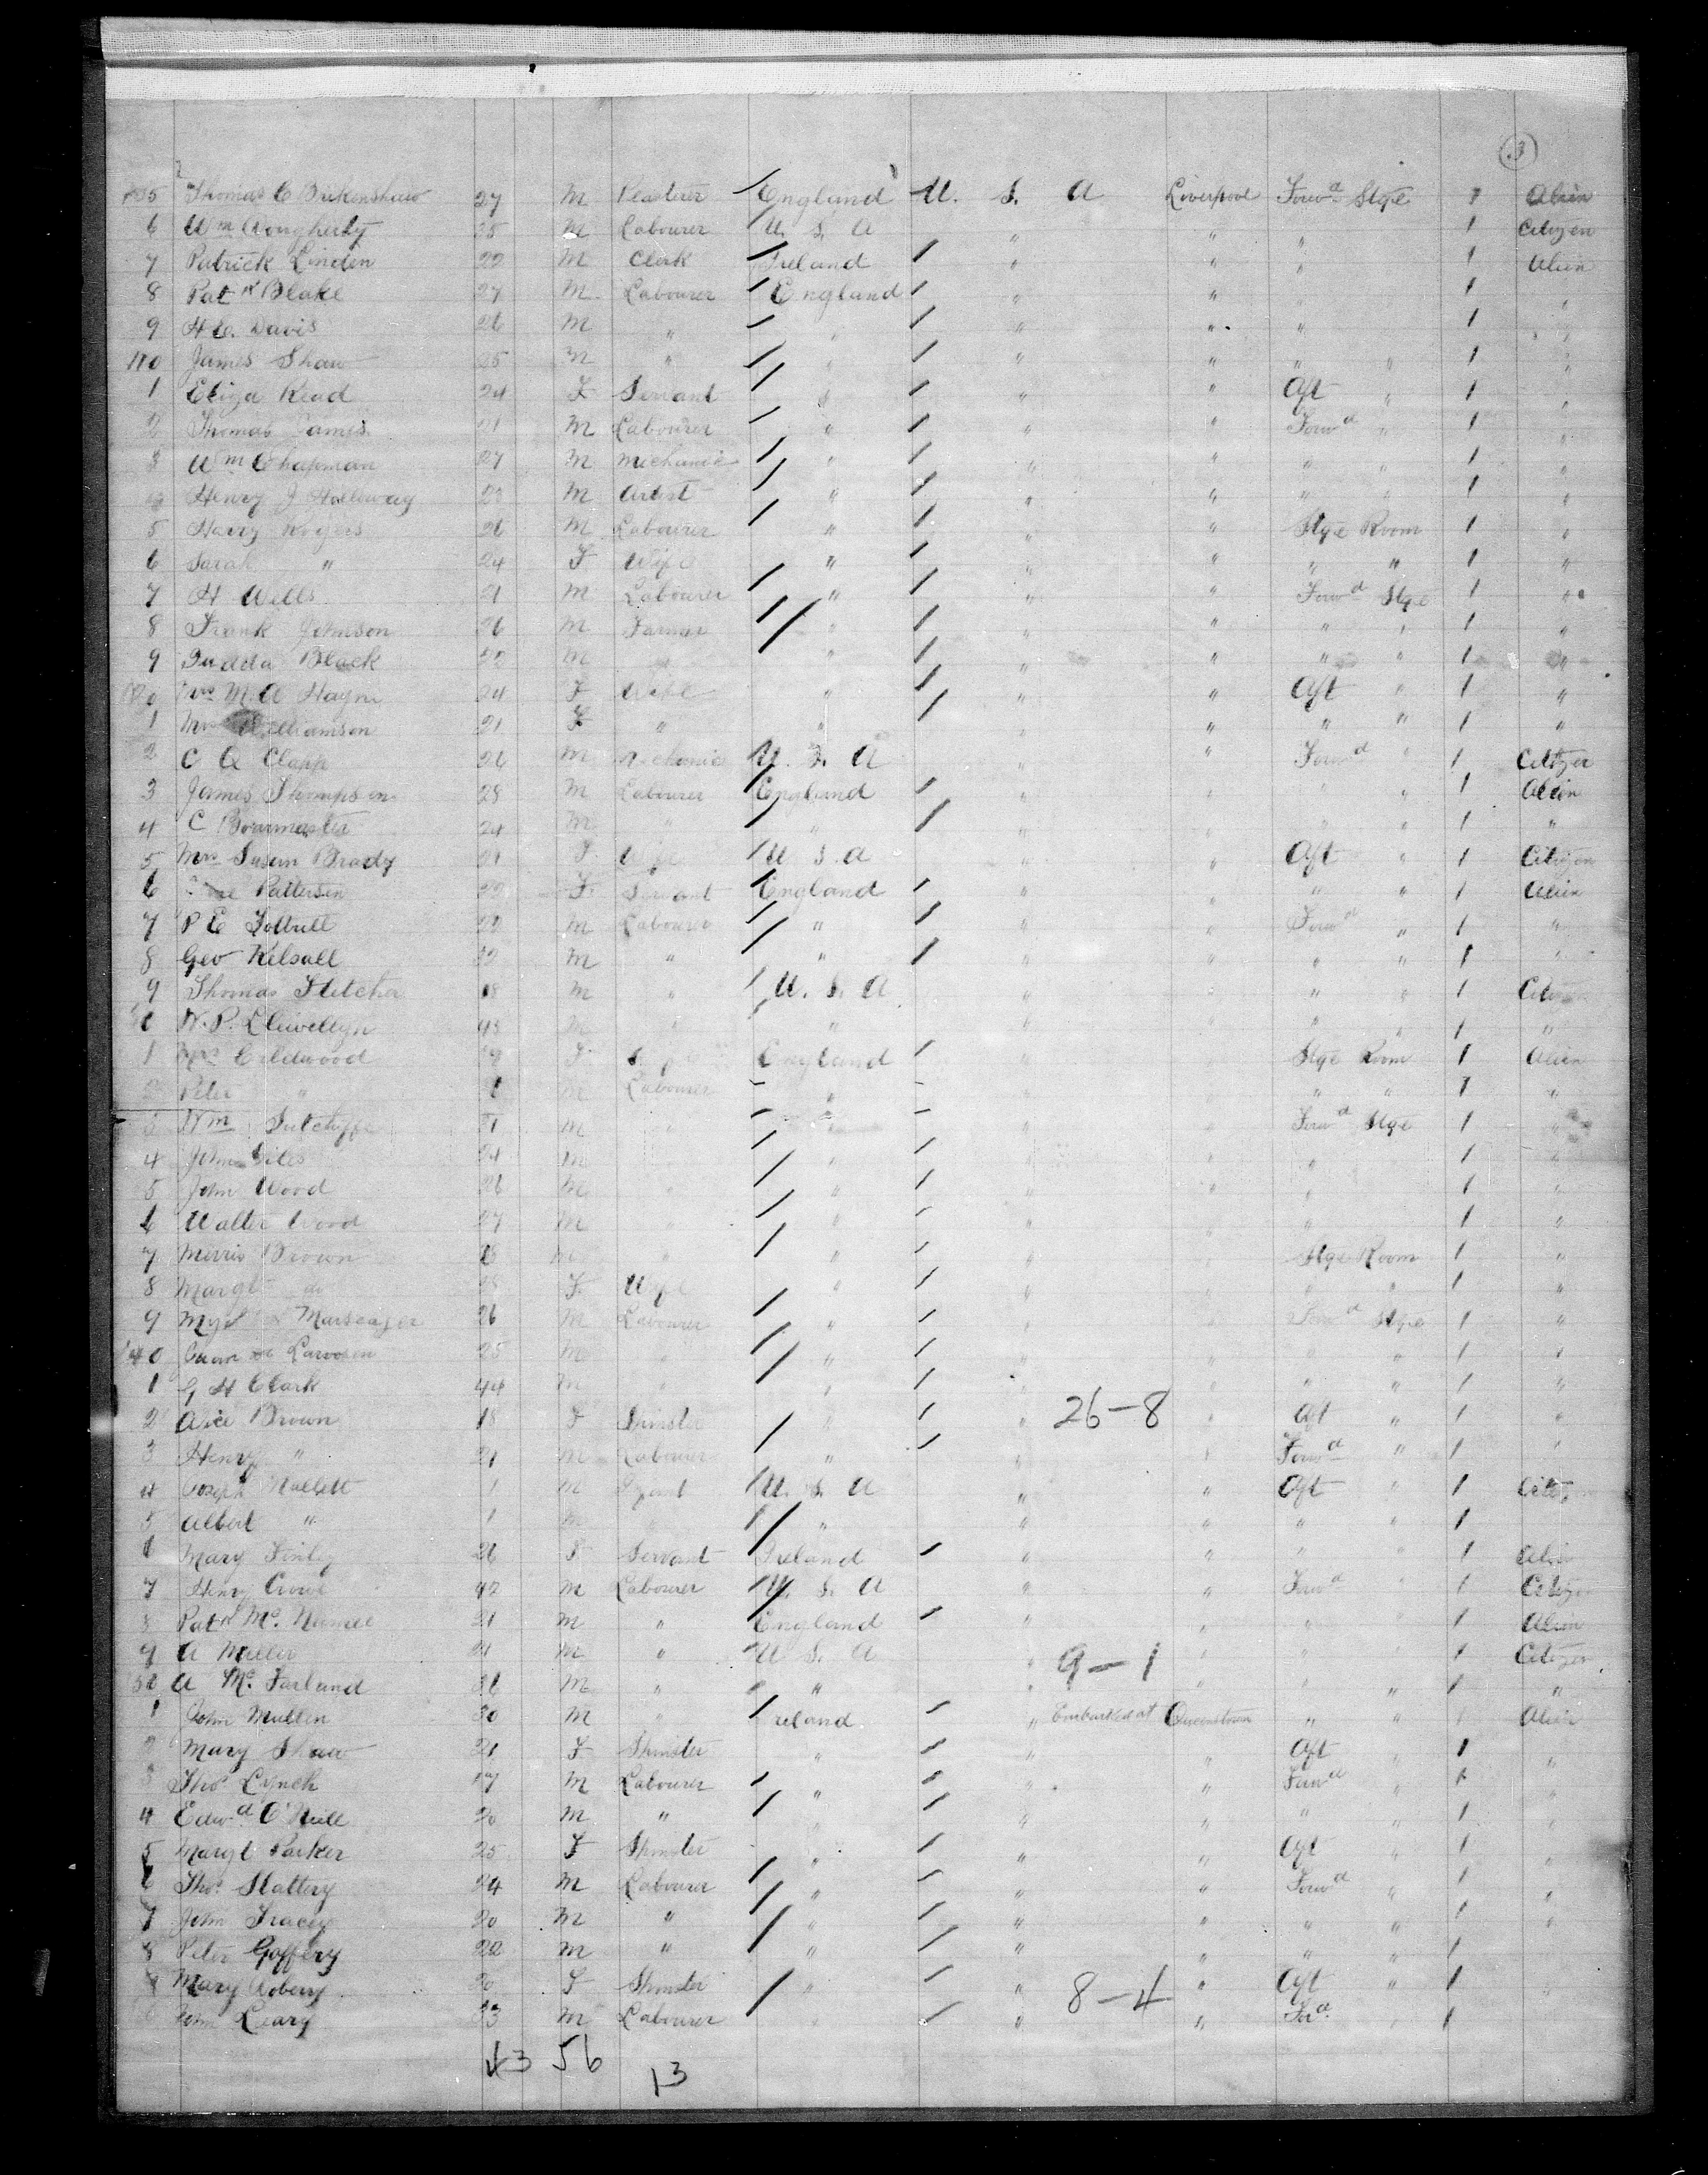 3
5 Thomas C Birkenshaw 27 M England U. S. A Liverpool Forwd Stge 1 Alien
6 Wm Dougherty 35 M Labourer U. S. A " " " 1 Citizen
7 Patrick Linden 22 M Clerk Ireland " " " 1 Alien
8 Patk Blake 27 M Labourer England " " 1 "
9 H C. Davis 26 M " " " " " 1 "
110 James Shaw 25 M " " " " " " 1 "
1 Eliza Read 24 F Servant " " " Aft " 1 "
2 Thomas James 21 M Labourer " " " Forwd " 1 "
3 Wm Chapman 27 M Mechanic " " " " " 1 "
4 Henry J Holloway 23 M Artist " " " " " 1 "
5 Harry Rogers 26 M Labourer " " " Stge Room 1 "
6 Sarah " 24 F Wife " " " " " 1 "
7 H Wills 21 M Labourer " " " Forwd Stge 1 "
8 Frank Johnson 26 M Farmer " " " " " 1 "
9 Black 22 M " " " " " 1 "
Mrs M. A Hayne 24 F Wife " " " Aft " 1 "
1 Mrs Williamson 21 F " " " " " " 1 "
2 C Q Clapp 26 M Mechanic U. S. A " " Forwd " 1 Citizen
3 James Thompson 28 M Labourer England " " " " 1 Alien
4 C 24 M " " " " " " 1 "
5 Mrs Susan Brady 21 F Wife U S. A " " Aft " 1 Citizen
6 Patterson 22 F Servant England " " " " 1 Alien
7 P E 22 M Labourer " " " Forwd " 1 "
8 Geo Kelsall 32 M " " " " " " 1 "
9 Thomas Fletcher 18 M " U. S. A " " " " 1 Citizen
W. P. Llewellyn 43 M " " " " " " 1 "
1 Mrs F England Stge Room 1 Alien
2 Peter " M Labourer " " " 1 "
3 Wm Sutcliffe 21 M " " Forwd Stge 1 "
4 John Giles 24 M " " " " 1 "
5 John Wood 26 M " " " " " 1 "
6 Walter Wood 27 M " " " " " 1 "
7 Morris Brown M " " " Stge Room 1 "
8 Margt do F Wife " " " " 1 "
9 26 M Labourer " " " Forwd Stge 1 "
40 25 M " " " " " " 1 "
1 G H Clark 44 M " " " " " " 1 "
2 Brown 18 F Spinster " " 26-8 " Aft " 1 "
3 Henry " 21 M Labourer " " " Forwd " 1 "
4 Joseph Mallett 1 M Infant U. S. A " " Aft " 1 Citizen
5 Albert " 1 M " " " " " " 1
6 Mary Finley 26 F Servant Ireland " " " " 1 Alien
7 Henry 42 M Labourer U. S. A " " Forwd " 1 Citizen
8 Patk Mc. Namee 21 M " England " " " " 1 Alien
9 A Miller 21 M " U S. A " 9-1 " " " 1 Citizen
50 A Mc. Farland 36 M " " " " " " 1 "
1 John Mullen 30 M " Ireland " Embarked at Queenstown " " 1 Alien
2 Mary Shaw 21 F Spinster " " " Aft " 1 "
3 Thos Lynch 17 M Labourer " " " Forwd " 1 "
4 Edwd O'Neill 20 M " " " " " " 1 "
5 Margt Parker 25 F Spinster " " " Aft " 1 "
6 Thos. Slattery 24 M Labourer " " " Forwd " 1 "
7 John Tracey 20 M " " " " " " 1 "
8 Peter Goffery 22 M " " " " " " 1
9 Mary 20 F Spinster " " 8-4 " Aft " 1 "
John Leary 33 M Labourer " " " Ford. " 1
43 56
13